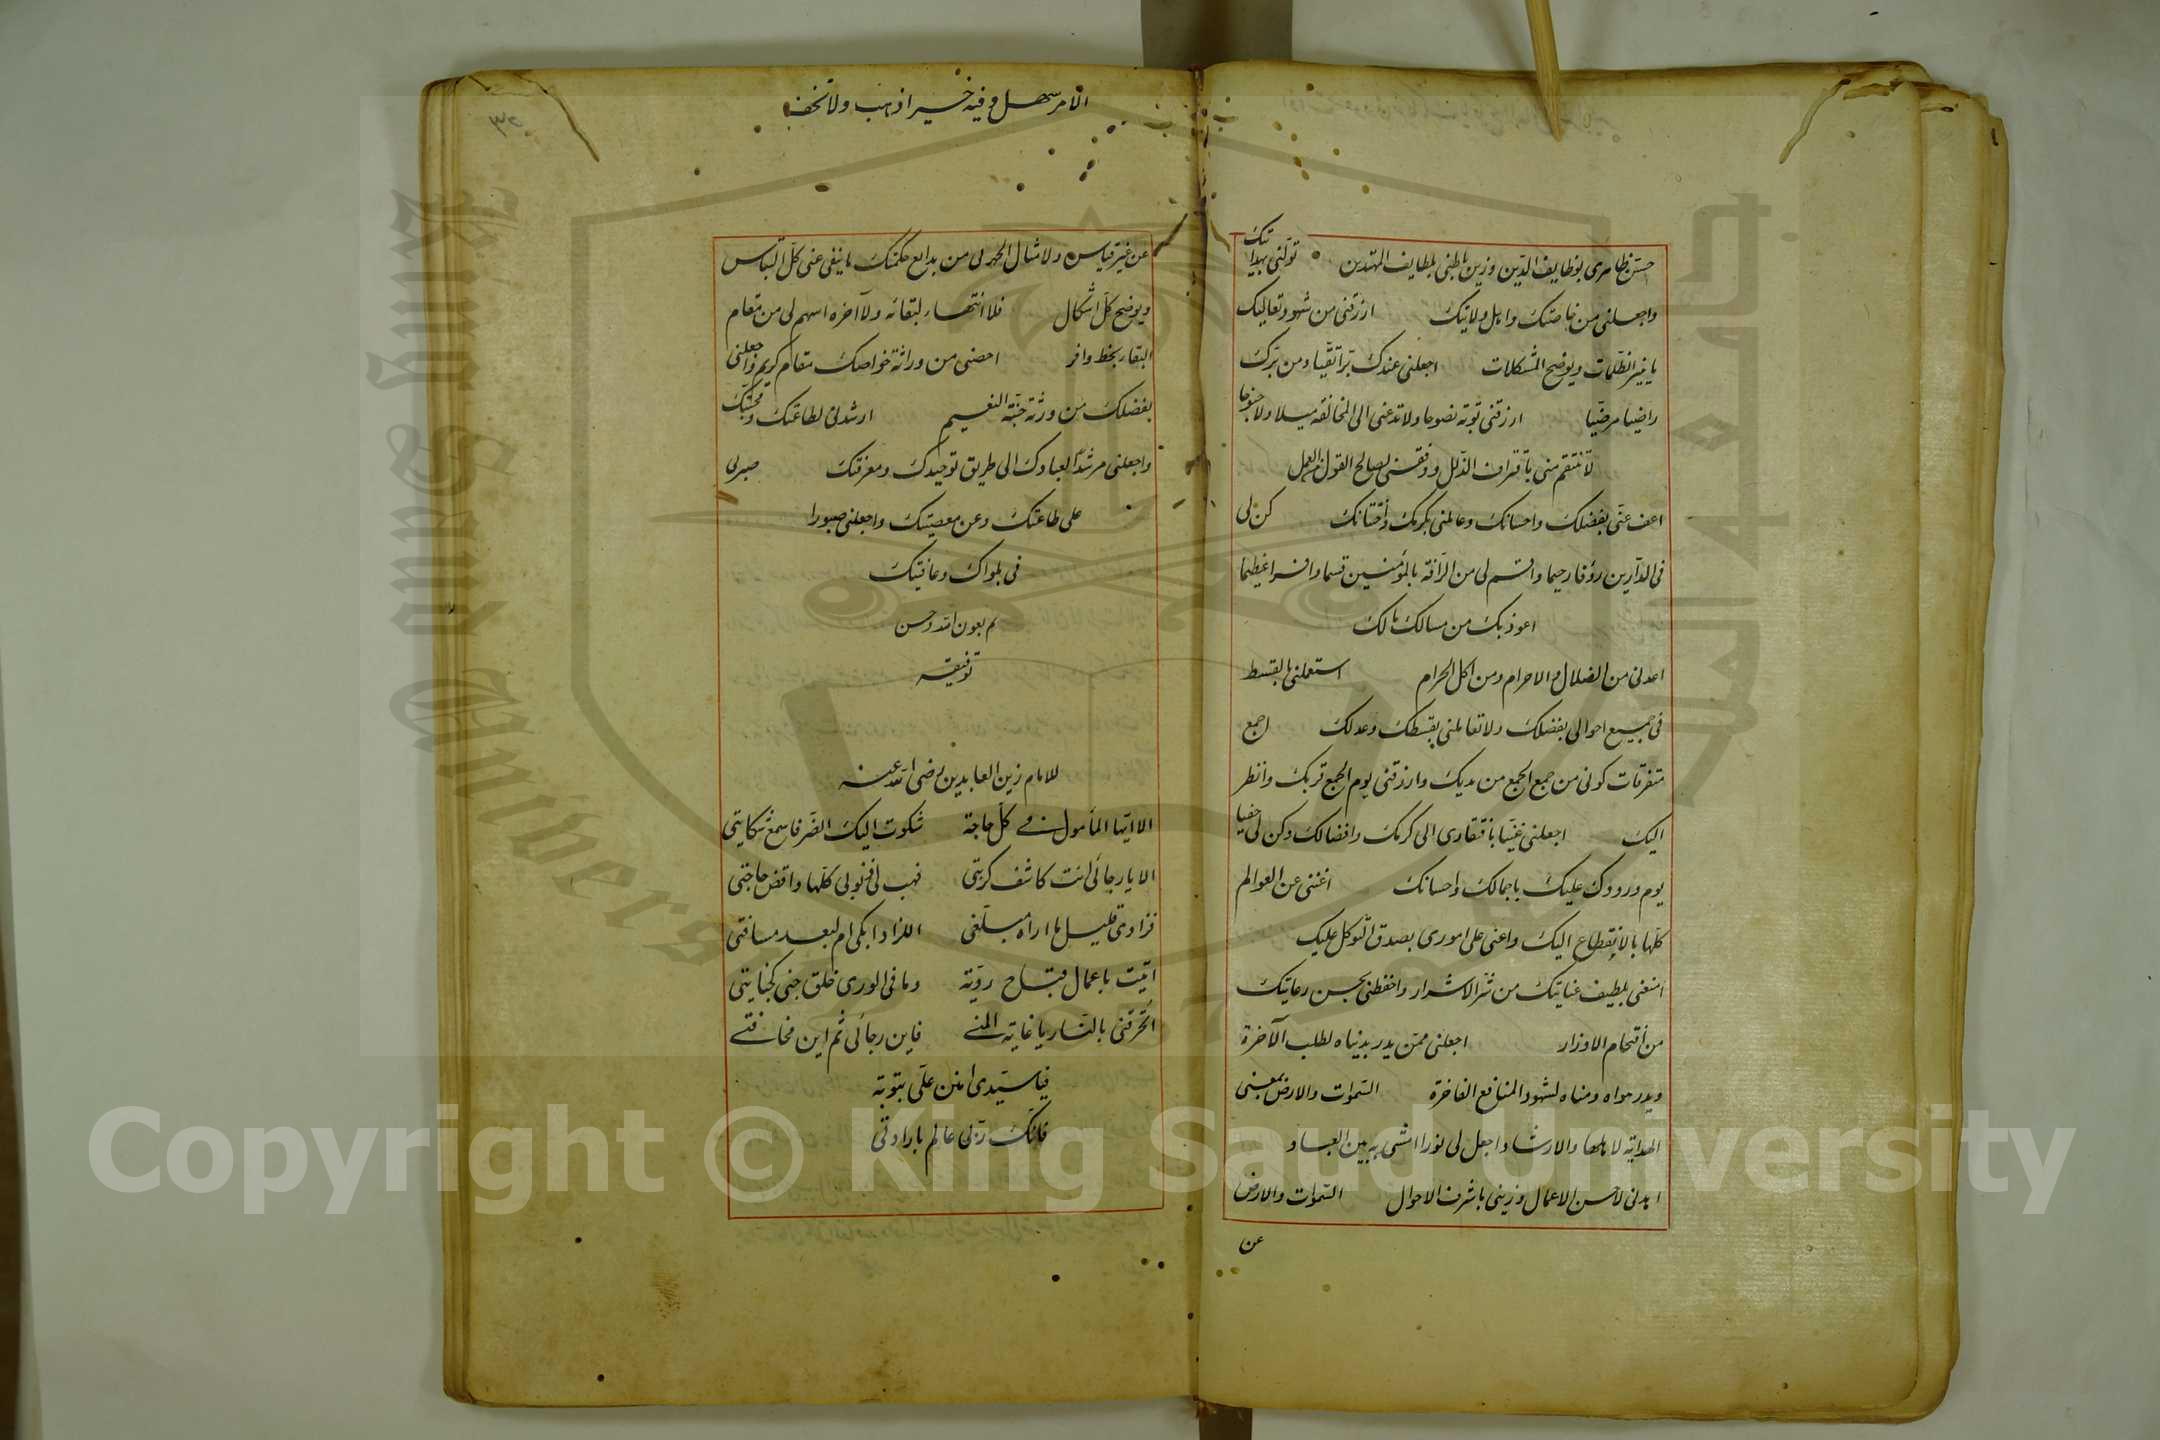 حسّن ظاهرى بوظايف الدّين وزيّن باطنى بلطايف المهتدين تولّنى بهدايتك
واجعلنى من خاصتك واهل ولايتك ارزقنى من شهود تعاليك
ما ينير الظلمات ويوضح المشكلات اجعلنى عندك برّا تقيّا ومن برّك
راضيا مرضيّا ارزقنى توبة نصوحا ولا تدعنى الى المخالفة ميلا ولا جنوحا
لا تنتقم منى باقتراف الذلل ووفقنى لصالح القول والعمل
اعف عنّى بفضلك واحسانك وعاملنى بكرمك وامتنانك كن لى
فى الدارين رؤفا رحيما واقسم لى من الرأفة بالمؤمنين قسما وافرا عظيما
اعوذ بك من مسالك هالك
اعدنى من الضلال والاحرام ومن اكل الحرام استعملنى بالقسط
فى جميع احوالى بفضلك ولا تعاملنى بقسطك وعدلك اجمع
متفرقات كونى من جمع الجمع من مديك وارزقنى يوم الجمع قربك وانظر
اليك اجعلنى غنيّا بافتقارى الى كرمك وافضالك وكن لى حفيا
يوم ورودك عليك باجمالك واحسانك اغننى عن العوالم
كلّها بالانقطاع اليك واعنى على امورى بصدق التوكل عليك
امنعنى بلطيف عنايتك من شرّ الاشرار واحفظنى بحسن رعايتك
من اقتحام الاوزار اجعلنى ممّن يدر بدنياه لطلب الآخرة
ويدر هواه ومناه لشهود المنافع الفاخرة السّموات والارض بمعنى
الهداية لاهلها والارشاد اجعل لى نورا امشى به بين العباد
اهدنى لاحسن الاعمال وزينى باشرف الاحوال السّموات والارض
عن
٣٢
الامر سهل وفيه خير اذهب ولا تخف
عن غير قياس ولا مثال الحمد لى من بدايع حكمتك ما ينفى عنى كلّ التباس
ويوضح كلّ اشكال فلا انتهاء لبقائه ولا آخره اسهم لى من مقام
البقاء بحظ وافر احصنى من وراثة خواصك مقام كريم واجعلنى
بفضلك من ورثة جنّة النعيم ارشدنى لطاعتك ومحبّتك
واجعلنى مرشدا لعبادك الى طريق توحيدك ومعرفتك صبرنى
على طاعتك وعن معصيتك واجعلنى صبورا
فى بلواك وعافيتك
تم بعون الله وحسن
توفيقه
للامام زين العابدين رضى الله عنه
الا ايّها المأمول فى كلّ حاجة شكوت اليك الضّر فاسمع شكايتى
الا يا رجائى انت كاشف كربتى فهب لى ذنوبى كلّها واقض حاجتى
فزادى قليل ما اراه مبلّغى اللزاد ابكى ام لبعد مسافتى
اتيت باعمال قباح رديّة وما فى الورى خلق جنى كجنايتى
اتحرقنى بالنّار يا غاية المنى فاين رجائى ثم اين مخافتى
فيا سيّدى امنن علّى بتوبة
فانّك ربّى عالم بارادتى
Copyright © King Saud University
King Saud University